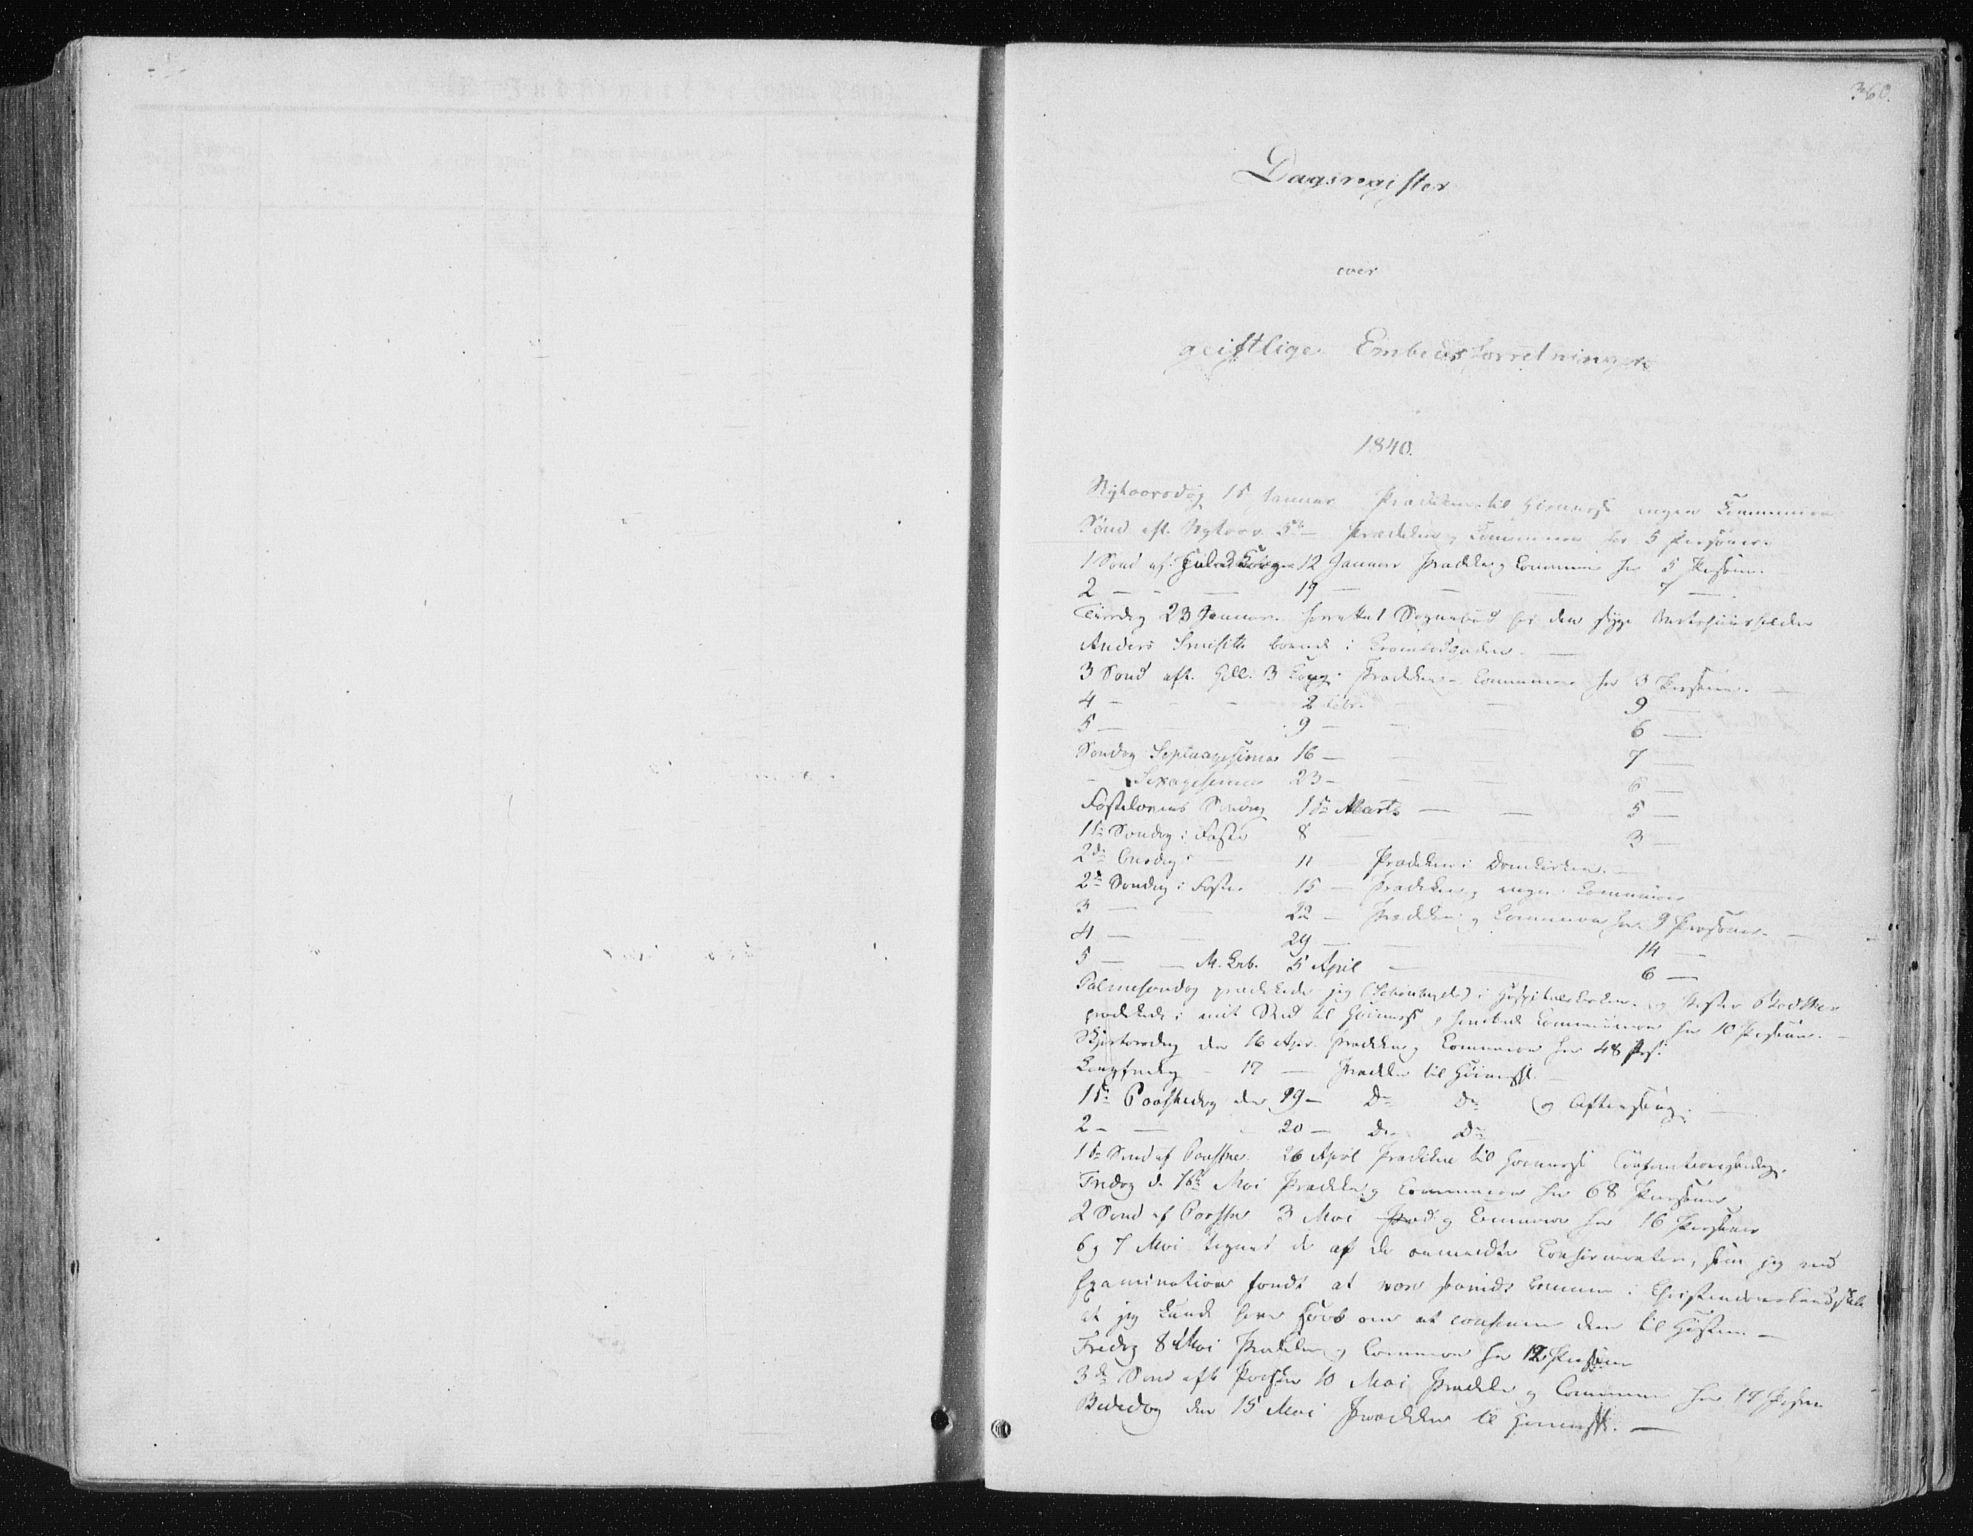 360.
Dagsregister
over
geistlige Embedsforretninger
1840.
Nytaarsdag 1ste Januar Prædiken til Høimesse ingen Communion
Sønd. eft. Nytaar 5te — Prædiken og Communion for 5 Personer
1 Sønd ef. Hel. 3 Kong. 12 Januar Prædiken og Communion for 5 Person.
2 — — 19 — — —
Tirsdag 23 Januar forrettet Sognebud for den syge
Anders boende i
3 Sønd eft. Hell. 3 Kong. Prædiken — Communion for 3 Person. —
4 — — 2 Febr. — — 9 —
5 — 9 — — 6 —
Søndag Septuagesima 16 — — 7 —
— Sexagesima 23 — — 6 —
Fastelavns Søndag 1ste Marts — — 5 —
1ste Søndag i Faste 8 — 3 —
2den Onsdag — 11 — Prædiken i Domkirken. —
2den Søndag i Faste 15 — Prædiken, ingen Communion
3 — — 22 — Prædiken og Communion for 9 Personer. —
4 — — 29 — — 14 —
5 — — M. Beb. 5 April — — 6 —
Palmesøndag prædikede jeg i Hospitalskirken og
prædikede i mit Sted til Høimesse, Communion for 10 Person. —
Skjærtorsdag den 16 Apr. Prædiken og Communion for 48 Pers.
Langfredag — 17 — Prædiken til Høimesse. —
1ste Paaskedag den 19 — Do Do (og Aftensang. —
2 — — 20 — Do Do
1ste Sønd ef Paaske 26 April Prædiken til Høimesse Confirmationsdag.
Fredag d. 1ste Mai Prædiken og Communion for 68 Personer
2 Sønd ef Paaske 3 Mai Præd. og Communion for 16 Personer
6 og 7 Mai tegnet de af de anmeldte Confirmanter, som jeg ved
Examination fandt at være saavidt komne i Christendomskundskab
at jeg kunde have Haab om at confirmere dem til Høsten. —
Fredag 8 Mai Prædiken og Communion for 12 Personer
3die Sønd eft Paaske 10 Mai Prædiken og Communion for 17 Person
Bededag den 15 Mai Prædiken til Høimesse. —